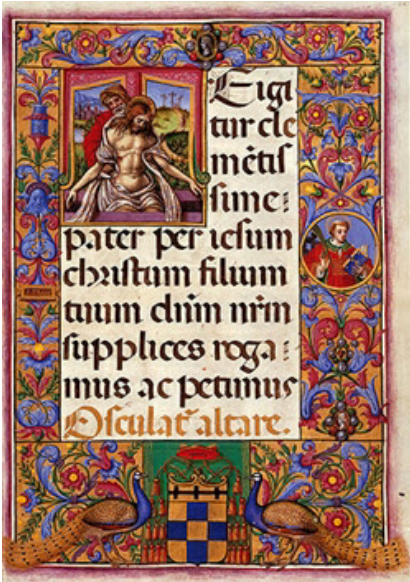 Eigi
tur cle
mētis
sime:
pater per iesum
christum filium
tuum dn̄m nr̄m
supplices roga:
mus ac petimus
Osculat᷒ altare.